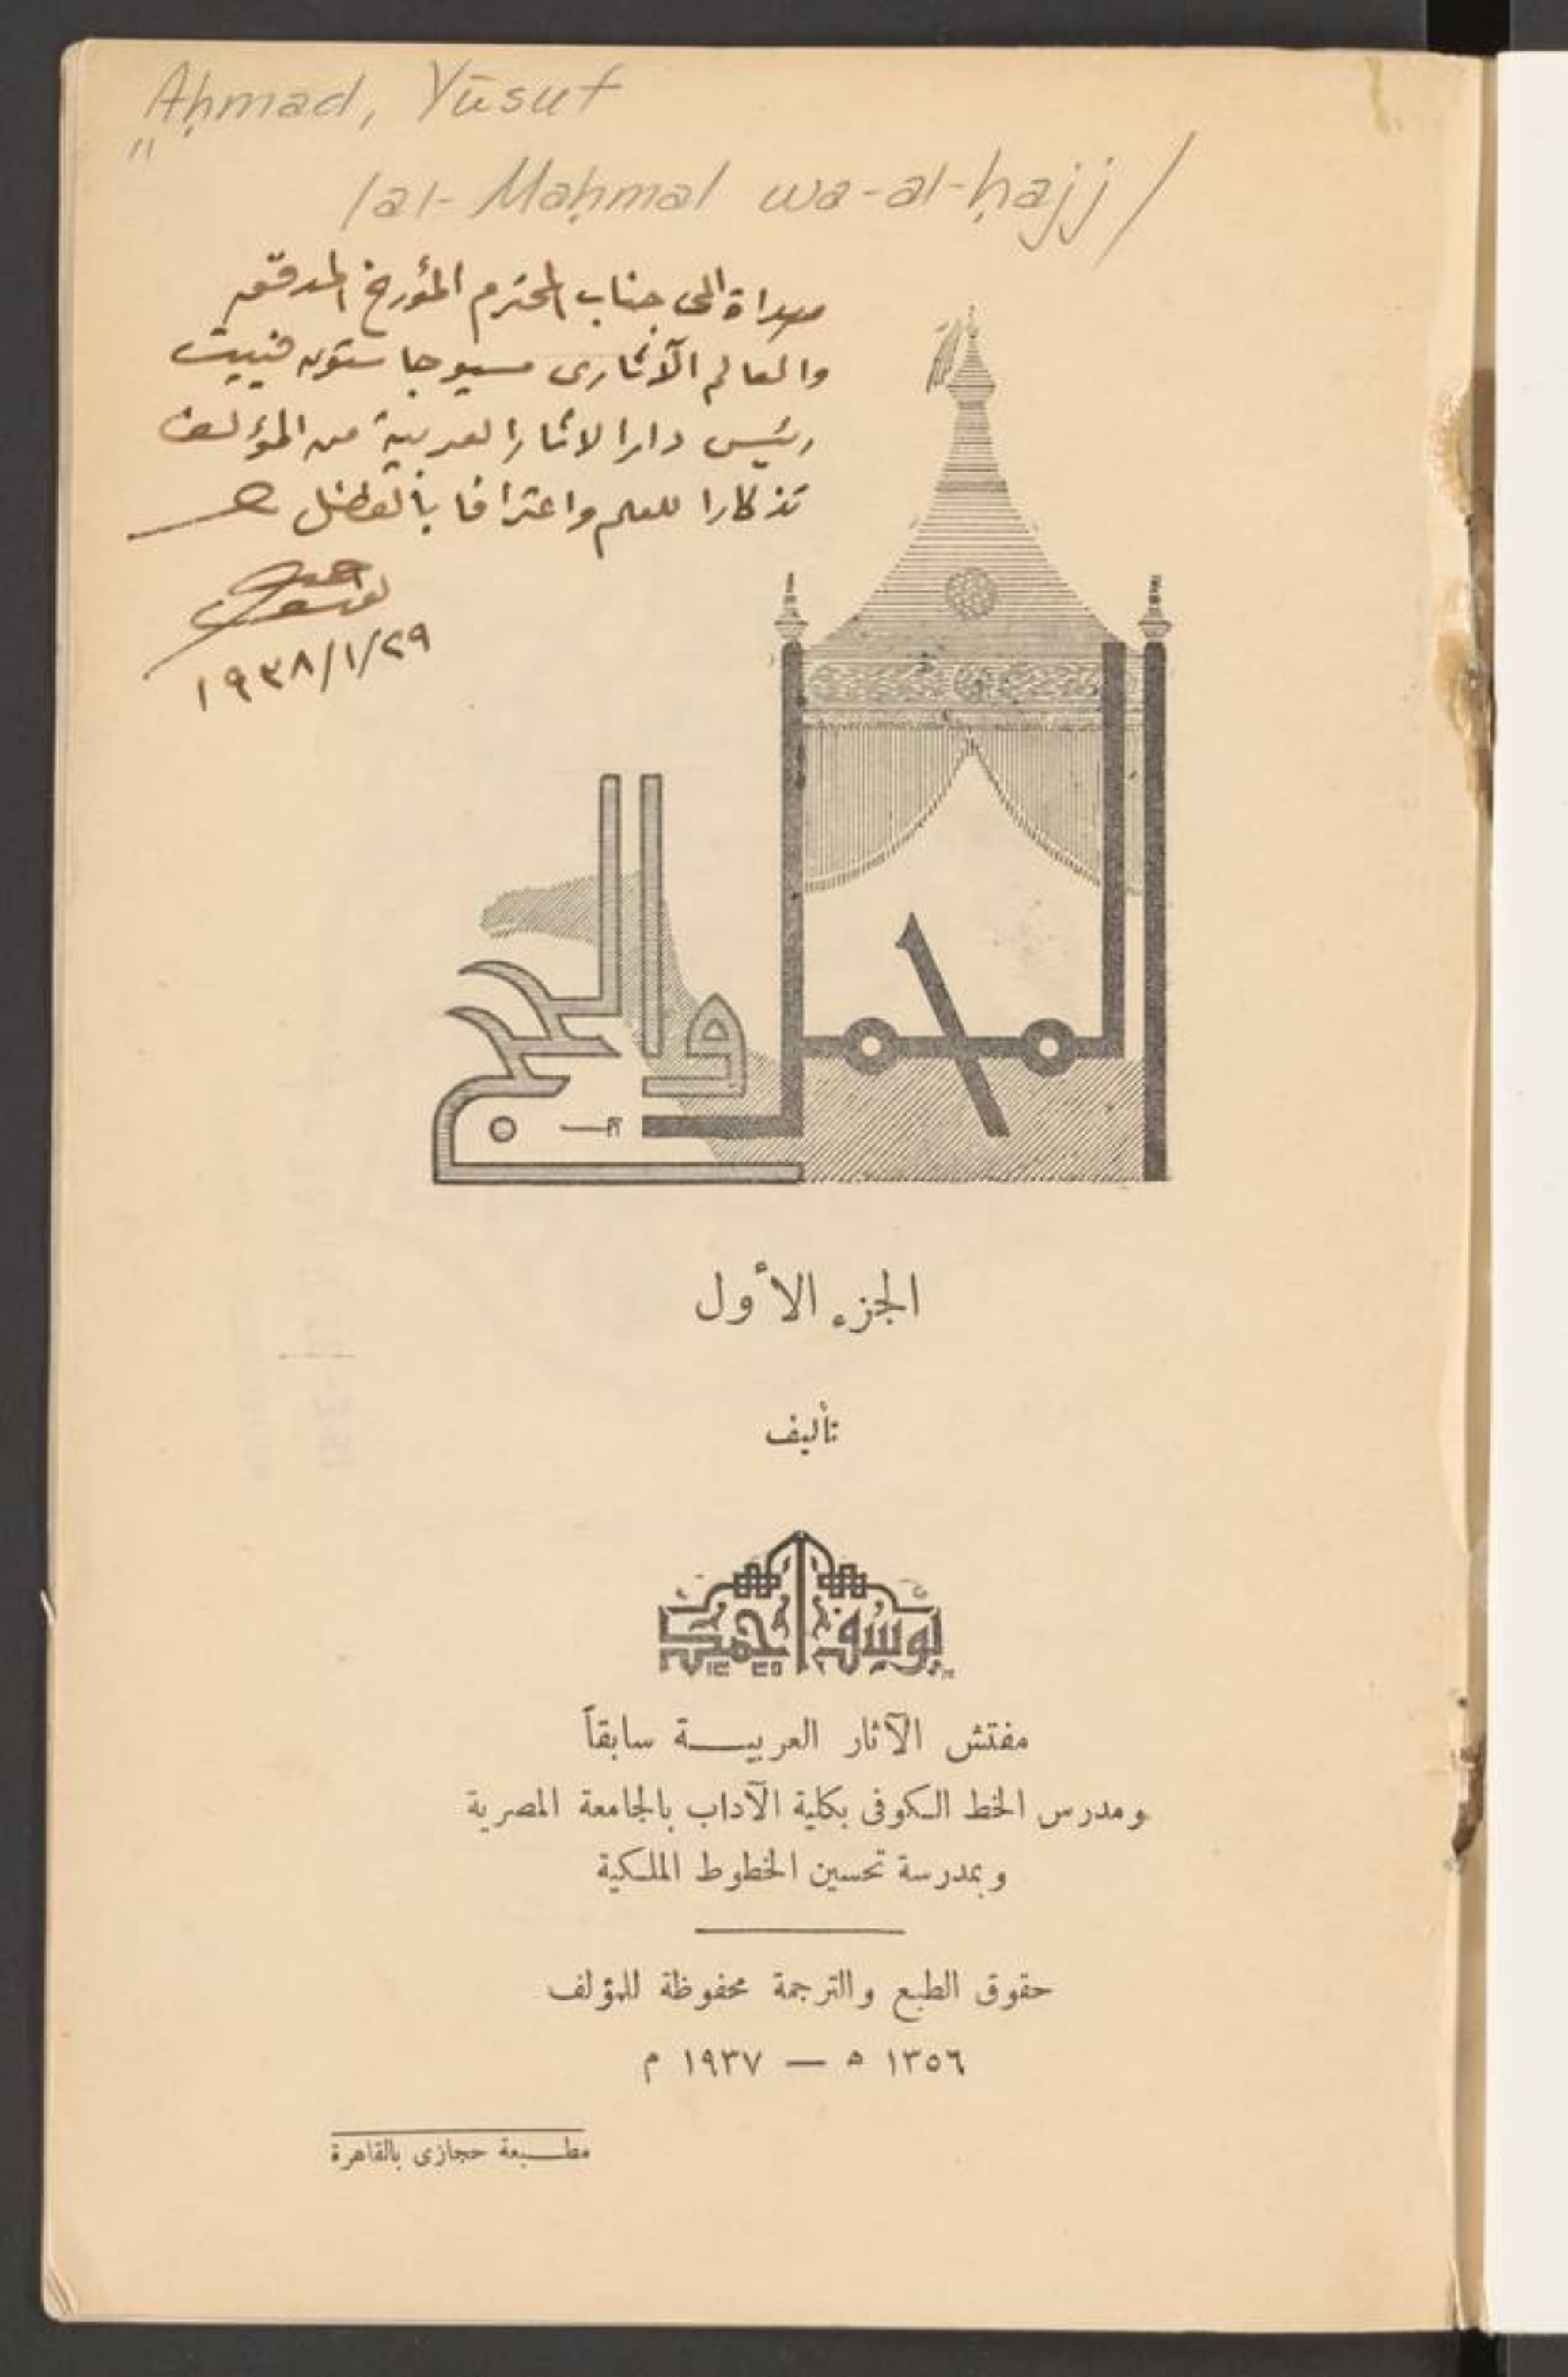 Aḥmad, Yūsuf
/al-Maḥmal wa-al-ḥajj/
مهداة الى جناب المحترم المؤرخ المدقق
والعالم الآثارى مسيو جاستون فييت
رئيس دار الاثار العربية من المؤلف
تذكارا للعلم واعترافا بالفضل
يوسف احمد
١٩٣٨/١/٢٩
المحمل
والحج
الجزء الأول
تأليف
يوسف احمد
مفتش الآثار العربية سابقاً
ومدرس الخط الكوفى بكلية الآداب بالجامعة المصرية
وبمدرسة تحسين الخطوط الملكية
حقوق الطبع والترجمة محفوظة للمؤلف
١٣٥٦ ه — ١٩٣٧ م
مطبعة حجازى بالقاهرة